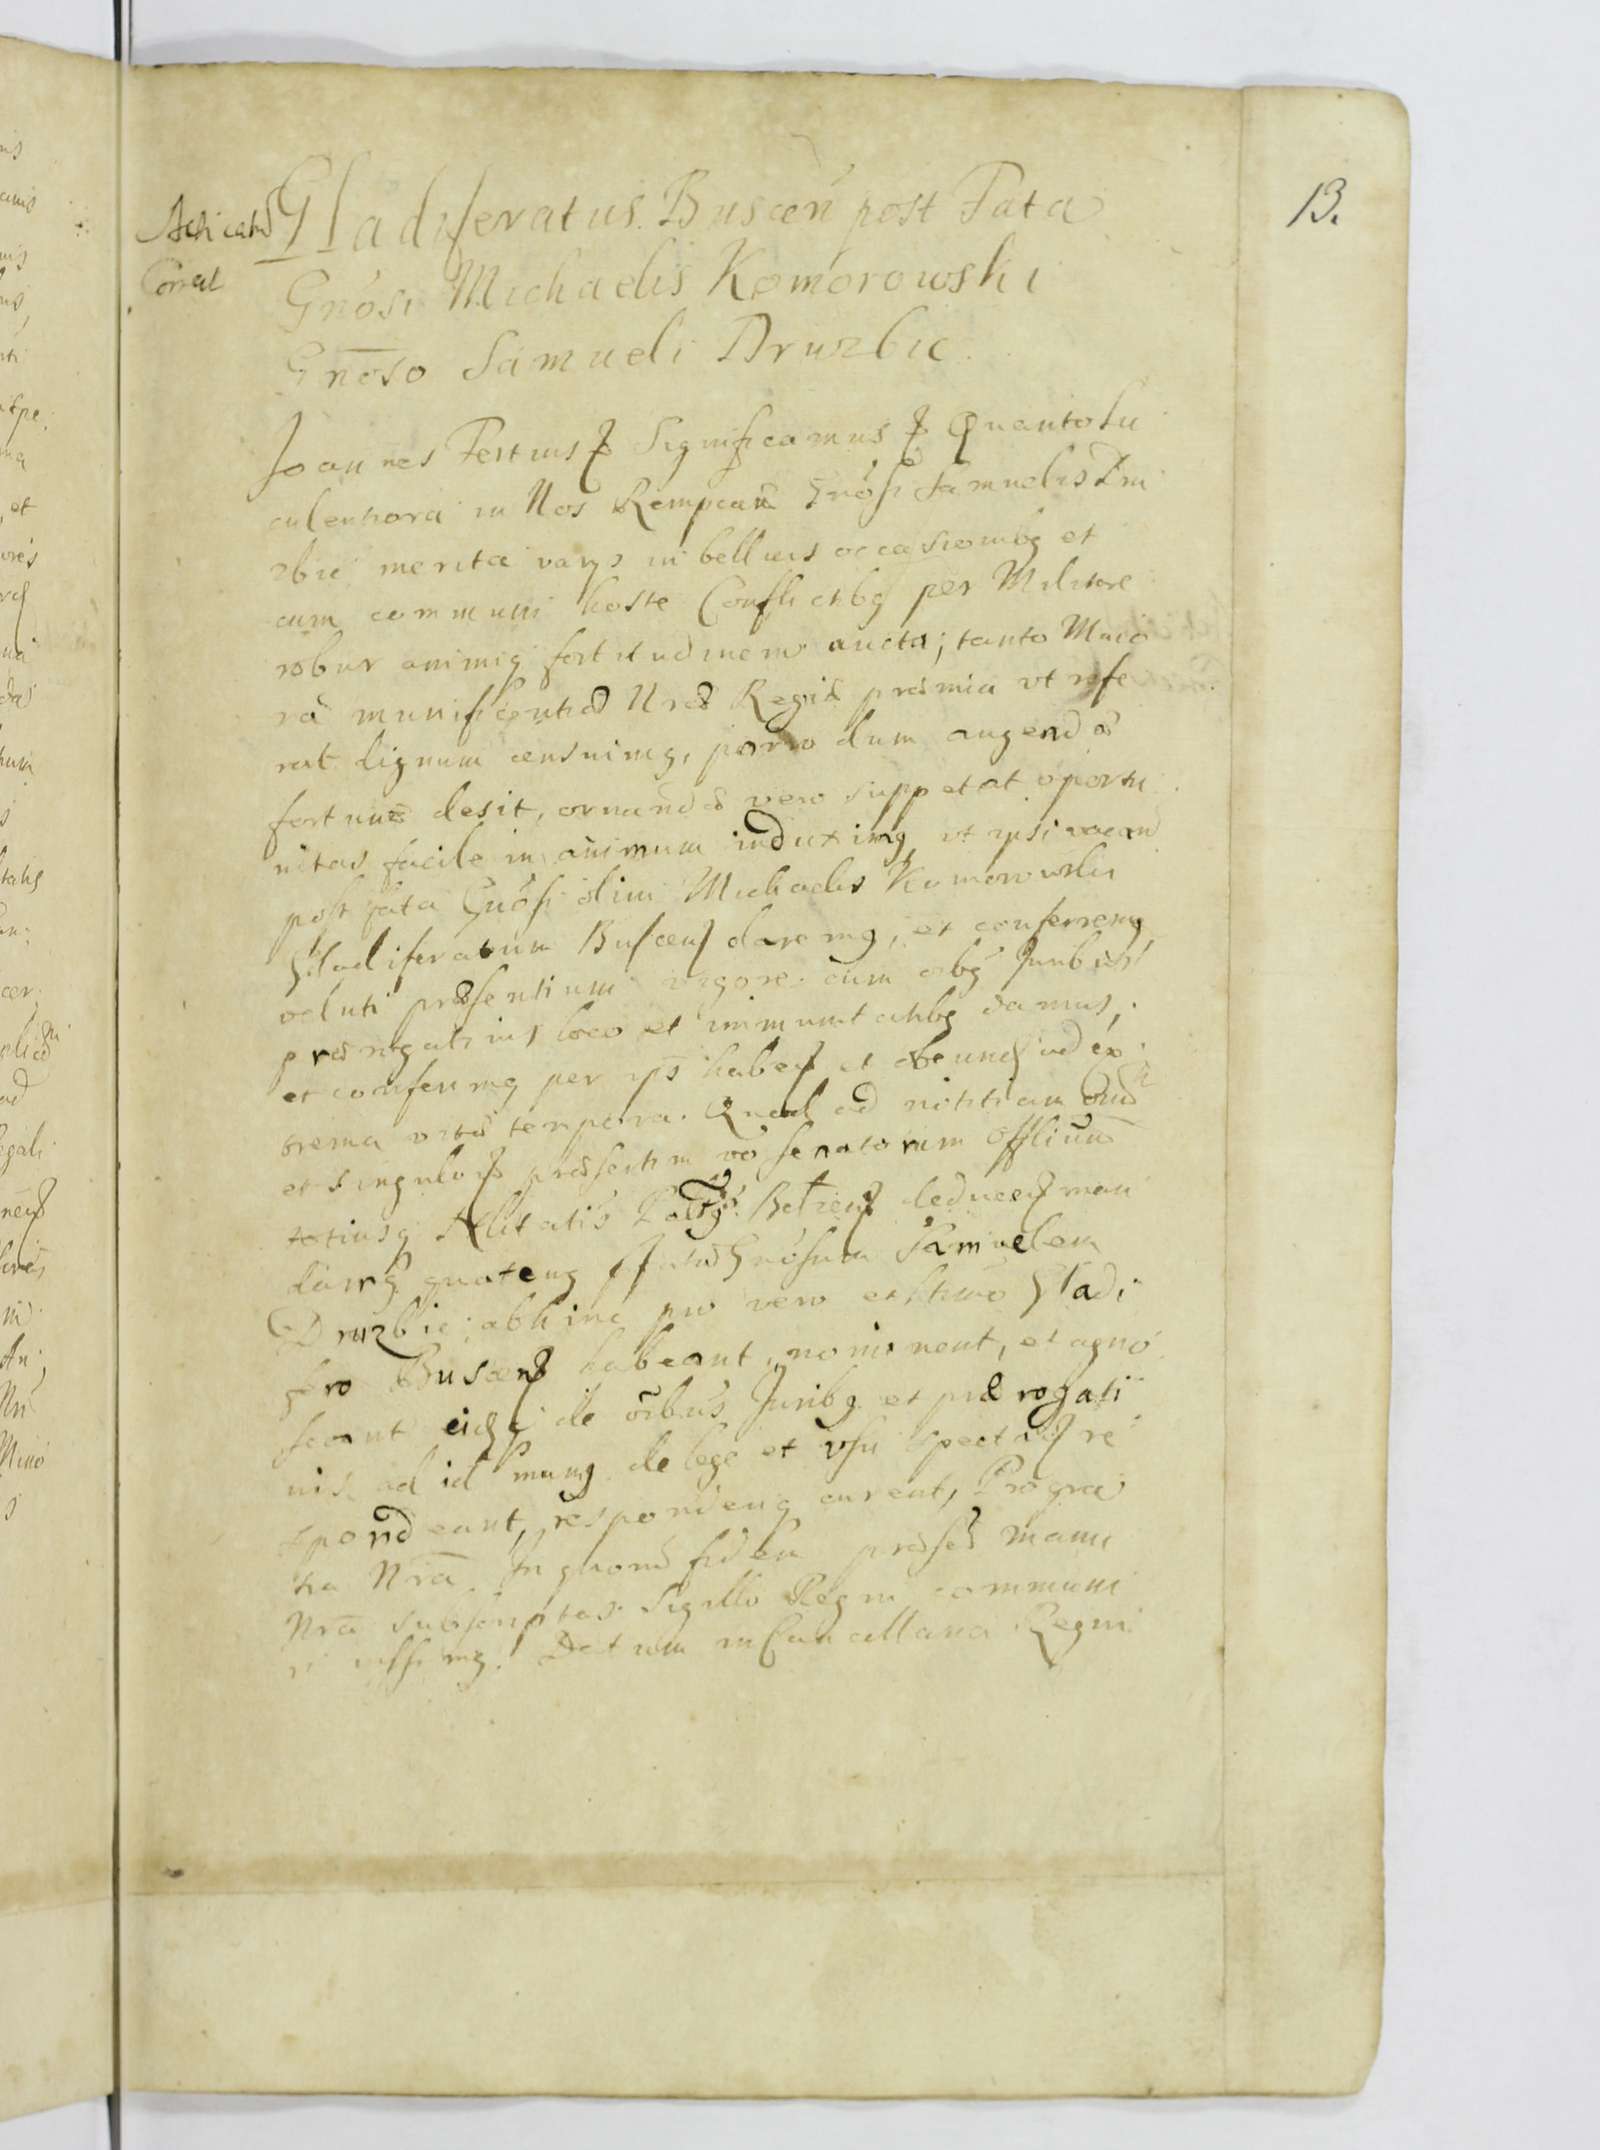 13.
Gladiferatus Buscen post Fata
Gnosi Michaelis Komorowski
Gnoso Samueli Druzbic
Joannes Tertius Significamus Quanto lu
culentiora in Nos Rempcam Gnosi Samuelis Dru
zbic merita varys in bellicis occasionibq et
cum communi hoste Conflictbq per Militare
robur animiq fortitudinem aucta; tanto Maio
ra munificentiæ Nræ Regiæ præmia vt refe
rat dignum censuimq, porro dum augendæ
fortunæ desit, ornandæ vero suppetat oportu
nitas facile in animum induximq vt ipsi vacan
post fata Gnosi olim Michaelis Komorowski
Gladiferatum Buscen daremq, et conferremq
veluti præsentium vigore cum oibq Juribus
prærogativis loco et immunitatibq damus,
et conferimq per ips haben et obeund ad ex
trema vitæ tempora. Quod ad notitiam oium
et singulor præsertim vo senatorum Officium
totiusq Nlitatis Palq Belzen deducen man
damq quatenq Gnosum Samuelem
Druzbic abhinc pro vero et ltimo Gladi
fero Buscen habeant, nominent, et agno
scant eidq de oibus Juribq et prærogati
uis ad id munq de lege et vsu spectan re
spondeant, responderiq curent, Pro gra
tia Nra. In quorum fidem præsen manu
Nra subscriptas Sigillo Regni communi
ri iussimq. Datum in Cancellaria Regni